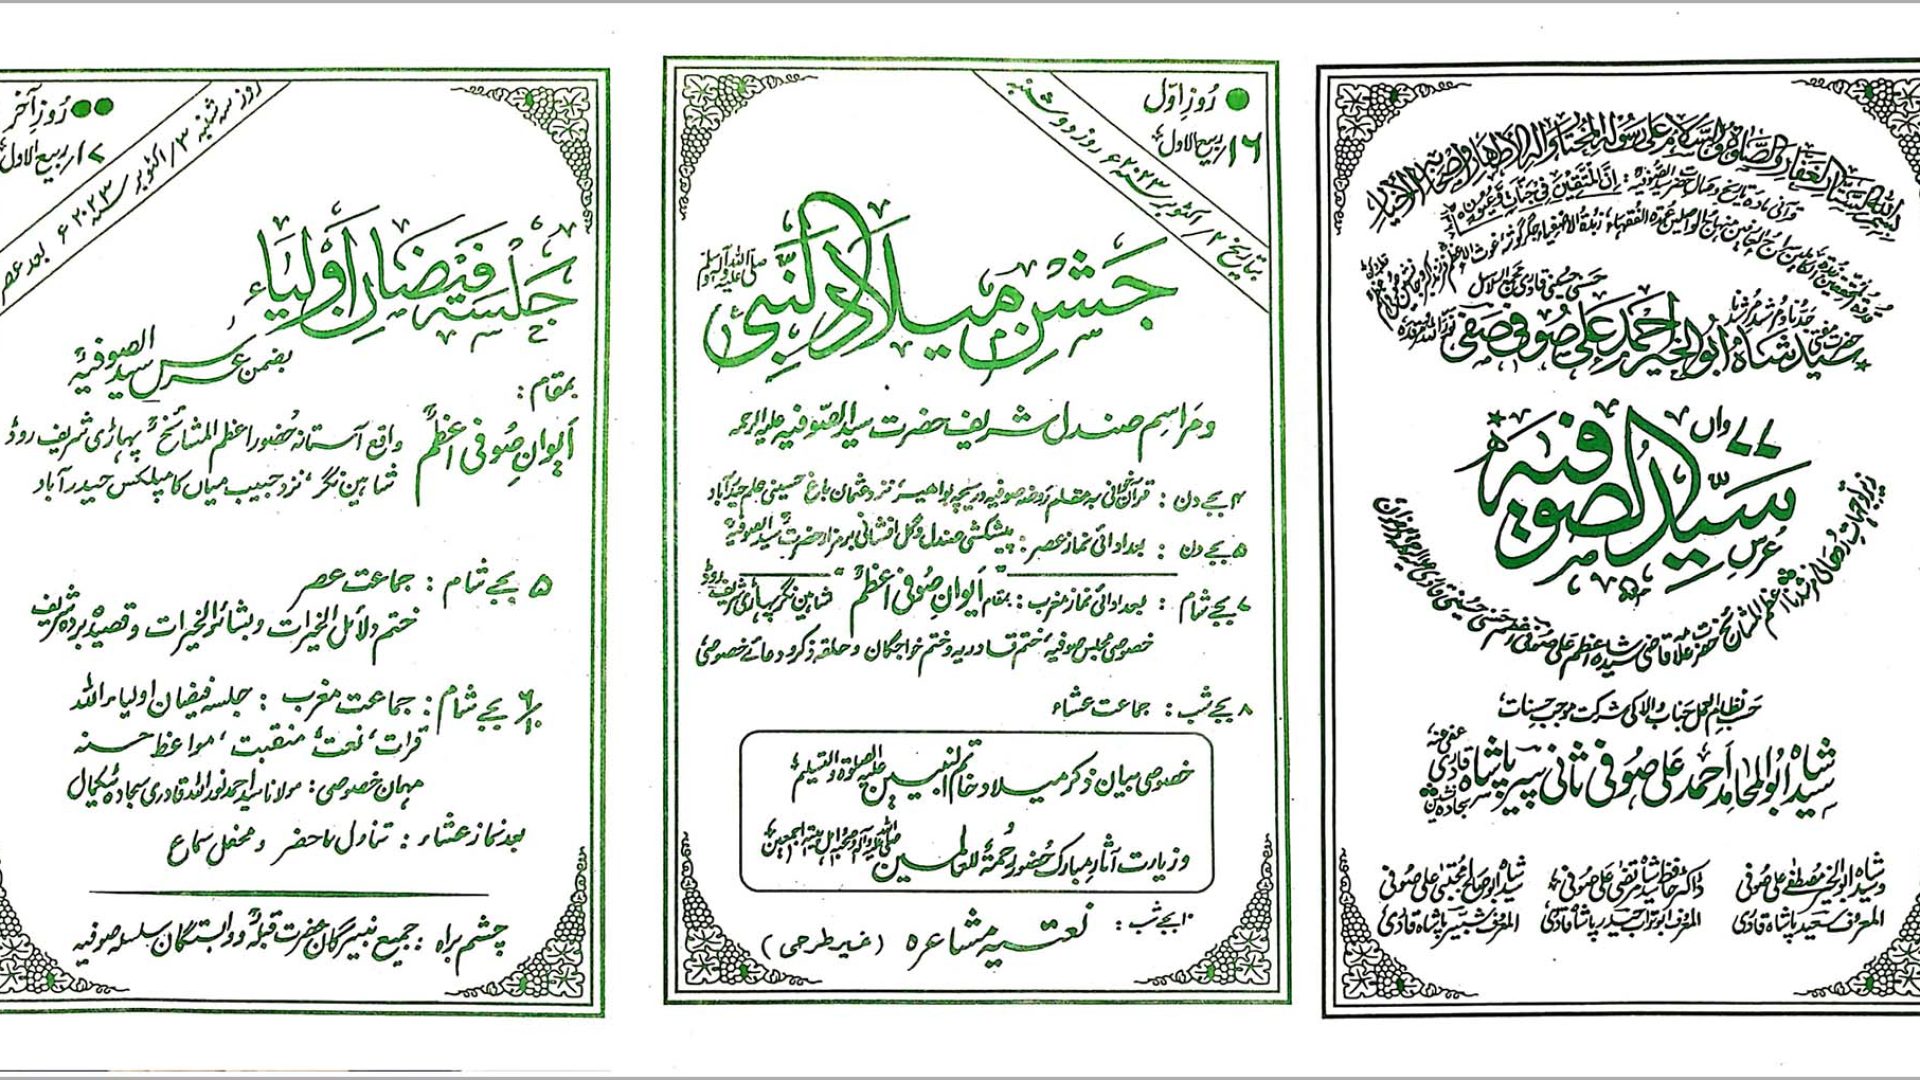 بسم اللہ الستار الغفار والصلوۃ والسلام علی رسولہ المختار وآلہ الاطہار واصحابہ الاخیار
قرآنی مادہ تاریخ وصال حضرت سید الصوفیہ: ان المتقین فی جنات وعیون
حسنی حسینی قادری
سید شاہ ابوالخیر احمد علی صوفی صفی
۷۷ واں
عرس
سید الصوفیہ
حسب نظام العمل جناب والا کی شرکت موجب حسنات
سید شاہ ابوالمحامد احمد علی صوفی ثانی سپر پاشاہ قادری عفی عنہ
سجادہ نشین
و سید شاہ ابوالخیر مصطفےٰ علی صوفی
المعروف سعید پاشاہ قادری
ڈاکٹر حافظ سید شاہ مرتضیٰ علی صوفی
المعروف ابوتراب حیدر پاشاہ قادری
سید شاہ ابو صالح مجتبیٰ علی صوفی
المعروف شبیر پاشاہ قادری
روزِ اوّل
۱۶ ربیع الاول
بتاریخ ۲/ اکتوبر سنہ ۲۰۲۳ء روز دوشنبہ
جشنِ میلاد النبی صلی اللہ علیہ وآلہ وسلم
و مراسم صندل شریف حضرت سید الصوفیہ علیہ الرحمہ
۴ بجے دن : قرآن خوانی بہ مقام روضہ صوفیہ دریچہ بواہیر، نزد عثمان باغ حسینی علم حیدرآباد
۵ بجے دن : بعد ادائی نماز عصر : پیشکشی صندل و گل افشانی بر مزار حضرت سید الصوفیہ
۷ بجے شام : بعد ادائی نماز مغرب : بمقام "ایوانِ صوفی اعظم" شاہین نگر پہاڑی شریف روڈ
خصوصی مجلس صوفیہ، ختم قادریہ و ختم خواجگان و حلقہ ذکر و دعائے خصوصی
۸ بجے شب : جماعت عشاء
خصوصی بیان ذکر میلاد خاتم النبیین علیہ الصلوۃ والتسلیم
و زیارت آثار مبارک حضور رحمۃ للعالمین صلی اللہ علیہ وآلہ وصحبہ اہل بیتہ اجمعین
۱۰ بجے شب : نعتیہ مشاعرہ (غیر طرحی)
روزِ آخر
۱۷ ربیع الاول
روز سہ شنبہ ۳/ اکتوبر سنہ ۲۰۲۳ء بعد عصر
جلسہ فیضانِ اولیاء
بضمن عرس سید الصوفیہ
بمقام :
ایوانِ صوفی اعظم واقع آستانہ حضور اعظم المشائخ پہاڑی شریف روڈ
شاہین نگر، نزد حبیب میاں کامپلکس حیدرآباد
۵ بجے شام : جماعت عصر
ختم دلائل الخیرات و بشائر الخیرات و قصیدہ بردہ شریف
۶/۱۰ بجے شام : جماعت مغرب : جلسہ فیضان اولیاء اللہ
قرات، نعت، منقبت، مواعظ حسنہ
مہمان خصوصی : مولانا سید احمد نور اللہ قادری سجادہ
بعد نماز عشاء : تناول ماحضر و محفل سماع
چشم براہ : جمیع نبیرگان حضرت قبلہ و وابستگان سلسلہ صوفیہ